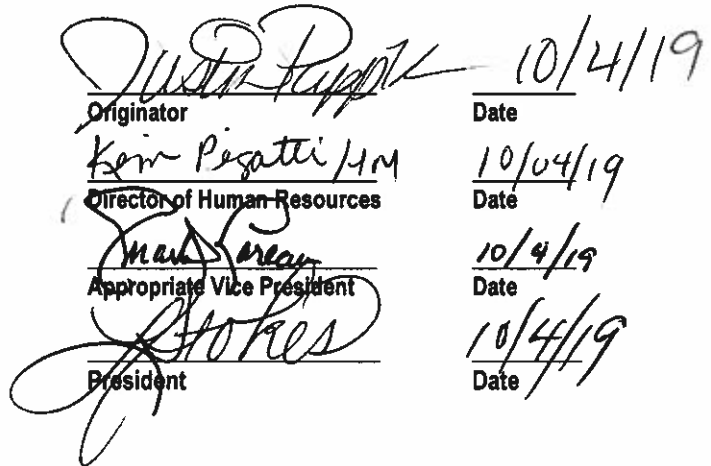 Justin 10/4/19
Originator Date
Kim Pegatti /HM 10/04/19
Director of Human Resources Date
Mark 10/4/19
Appropriate Vice President Date
JStokes 10/4/19
President Date